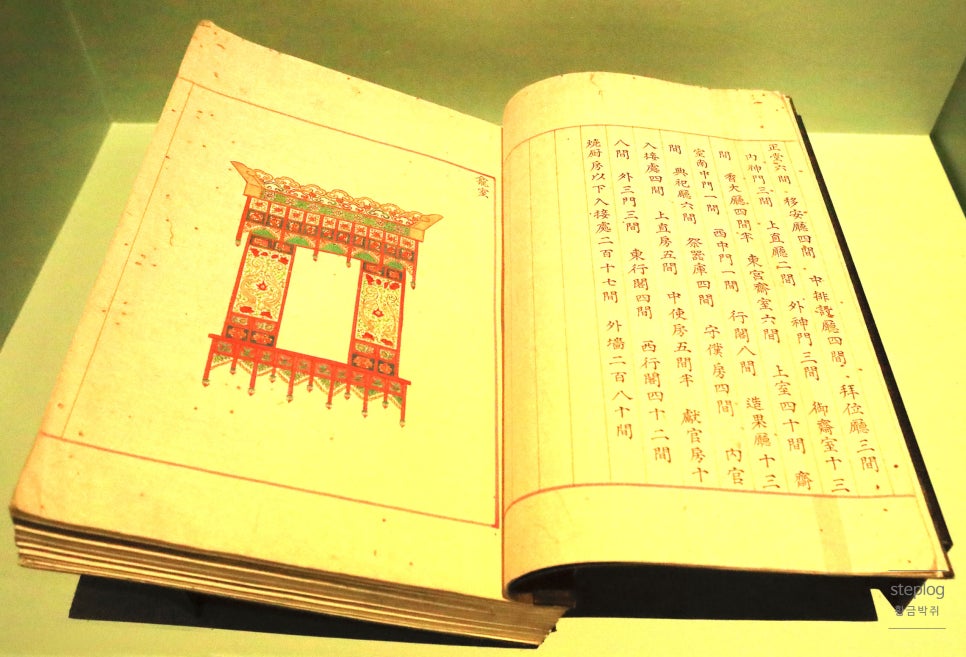 正堂六間 移安廳四間 中排設廳四間 拜位廳三間
內神門三間 上直廳二間 外神門三間 御齋室十三
間 香大廳四間半 東宮齋室六間 上室四十間 齋
室南中門一間 西中門一間 行閣八間 造果廳十三
間 典祀廳六間 祭器庫四間 守僕房四間 內官
入接處四間 上直房五間 中使房五間半 獻官房十
八間 外三門三間 東行閣四間 西行閣四十二間
燒厨房以下入接處二百十七間 外墻二百八十間
龕室
steplog
황금박쥐